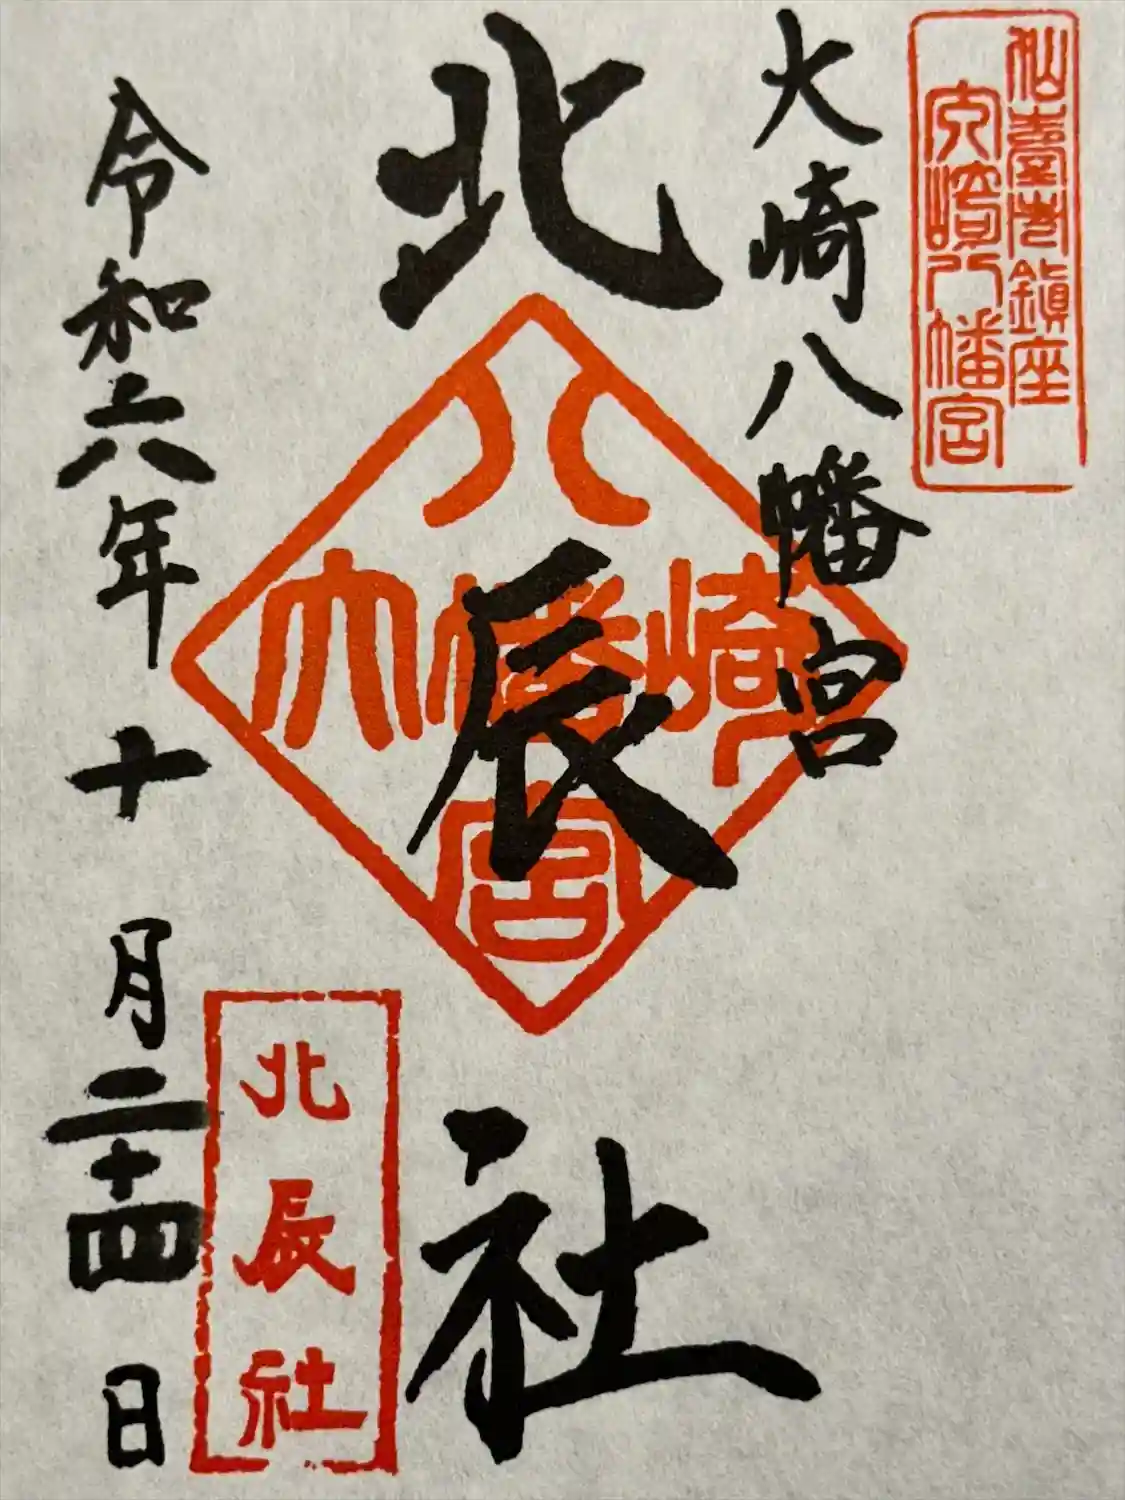 仙臺市鎮座
大崎八幡宮
大崎八幡宮
北辰社
八幡宮
大崎
北辰社
令和六年十月二十四日